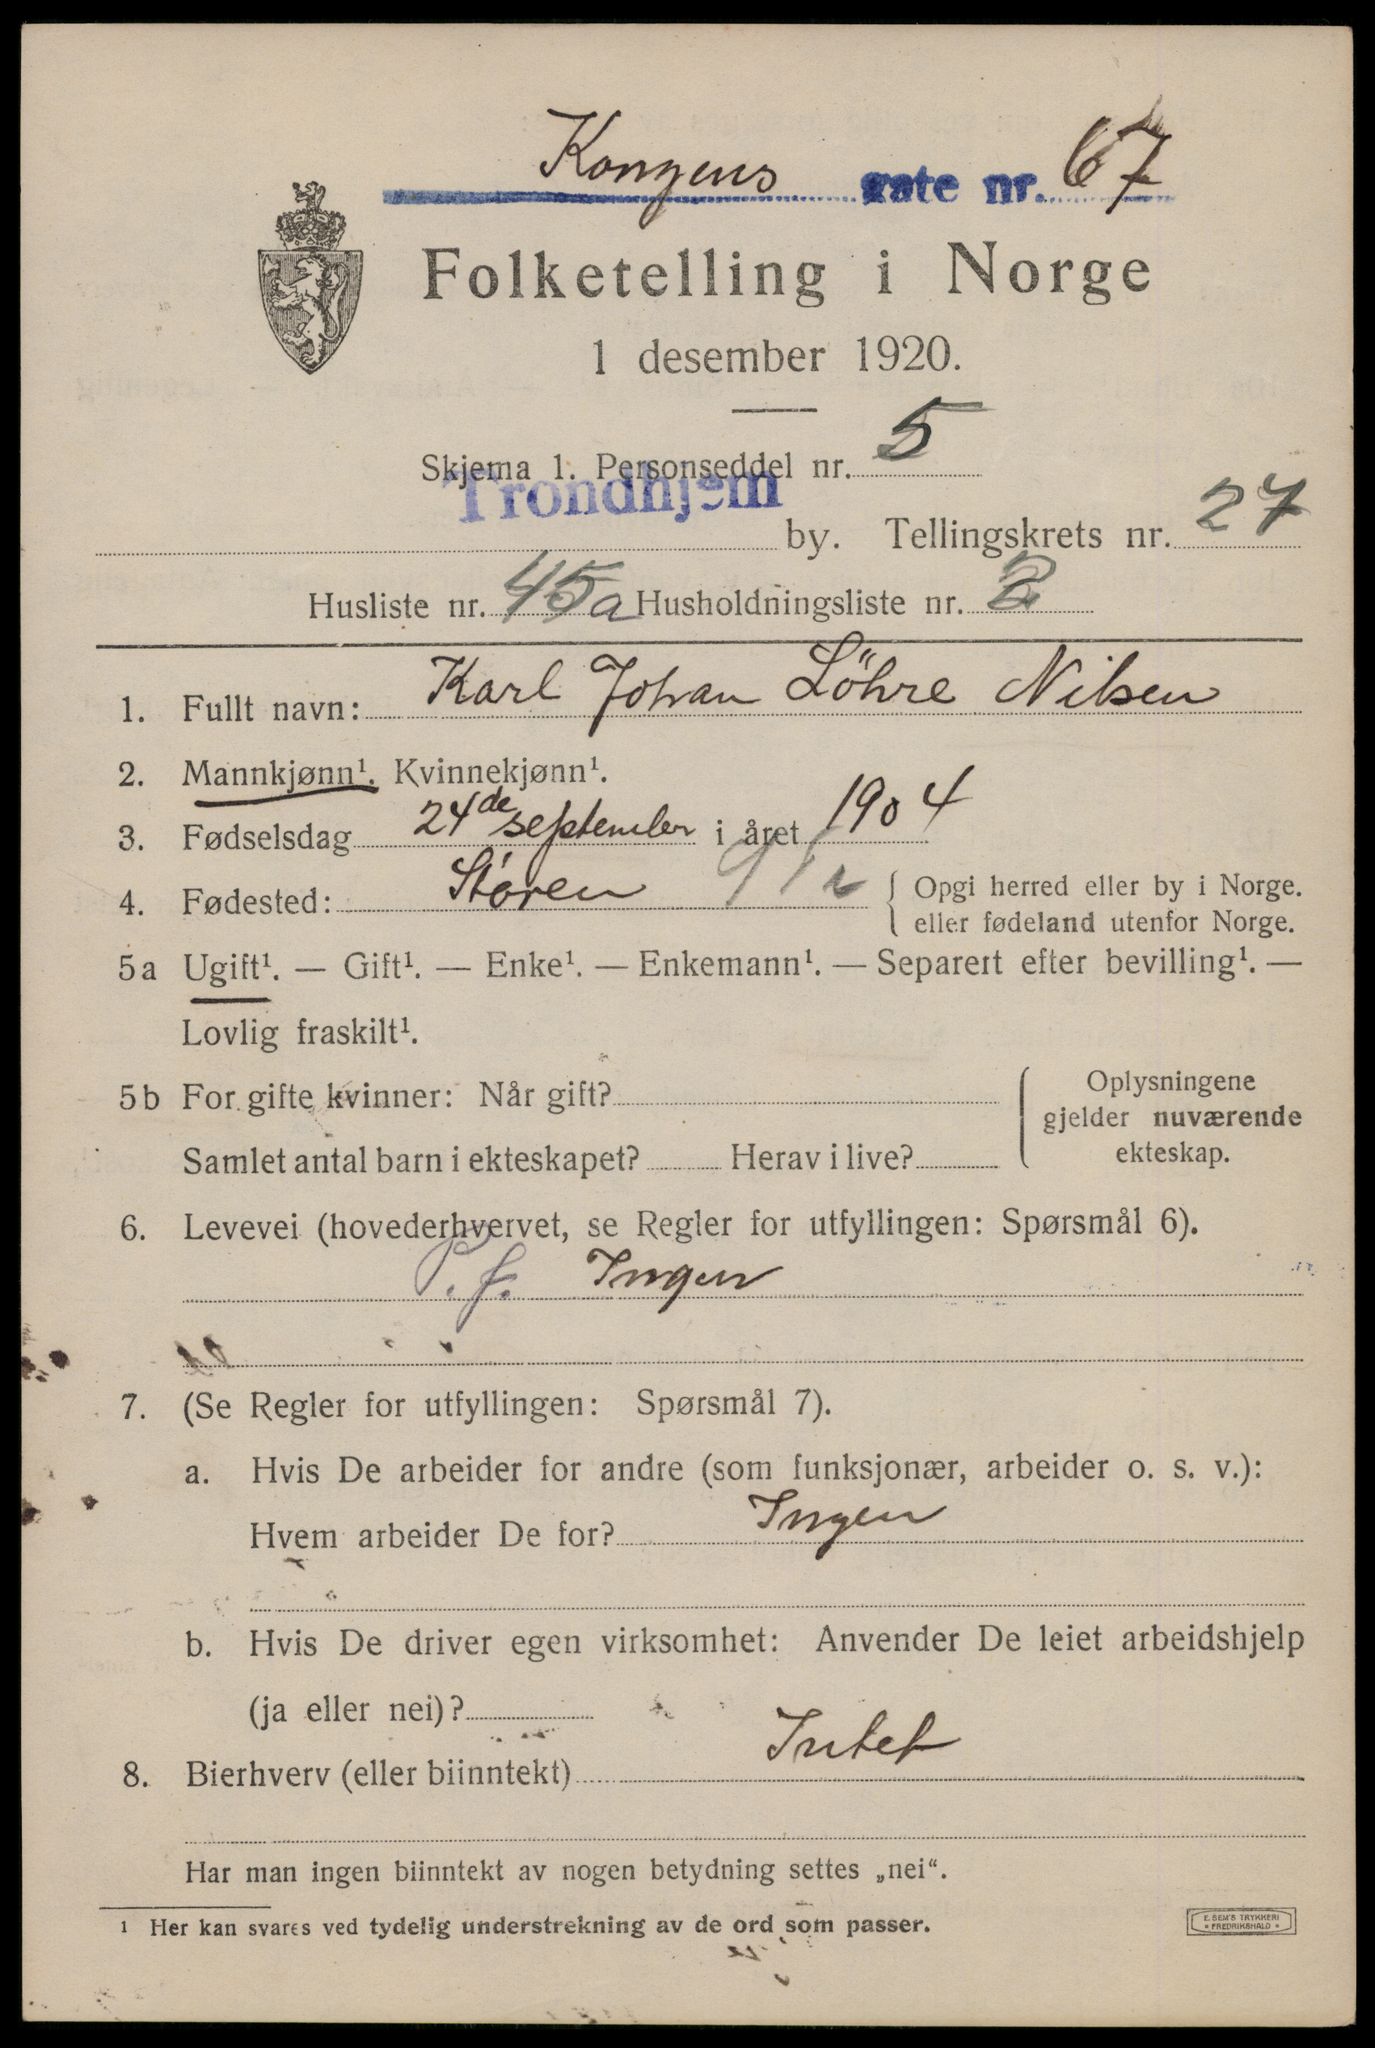 Kongens gate nr. 67
Folketelling i Norge
1 desember 1920.
Skjema 1. Personseddel nr. 5
Trondhjem by. Tellingskrets nr. 27
Husliste nr. 45a Husholdningsliste nr. 2
1. Fullt navn: Karl Johan Löhre Nilsen
2. Mannkjønn¹. Kvinnekjønn¹.
3. Fødselsdag 24de september i året 1904
4. Fødested: Støren
Opgi herred eller by i Norge.
eller fødeland utenfor Norge.
5a Ugift¹. — Gift¹. — Enke¹. — Enkemann¹. — Separert efter bevilling¹. —
Lovlig fraskilt¹.
5b For gifte kvinner: Når gift?
Samlet antal barn i ekteskapet? Herav i live?
Oplysningene
gjelder nuværende
ekteskap.
6. Levevei (hovederhvervet, se Regler for utfyllingen: Spørsmål 6).
P.f. Ingen
7. (Se Regler for utfyllingen: Spørsmål 7).
a. Hvis De arbeider for andre (som funksjonær, arbeider o. s. v.):
Hvem arbeider De for? Ingen
b. Hvis De driver egen virksomhet: Anvender De leiet arbeidshjelp
(ja eller nei)?
8. Bierhverv (eller biinntekt) Intet
Har man ingen biinntekt av nogen betydning settes „nei“.
¹ Her kan svares ved tydelig understrekning av de ord som passer.
E. SEM'S TRYKKERI
FREDRIKSHALD